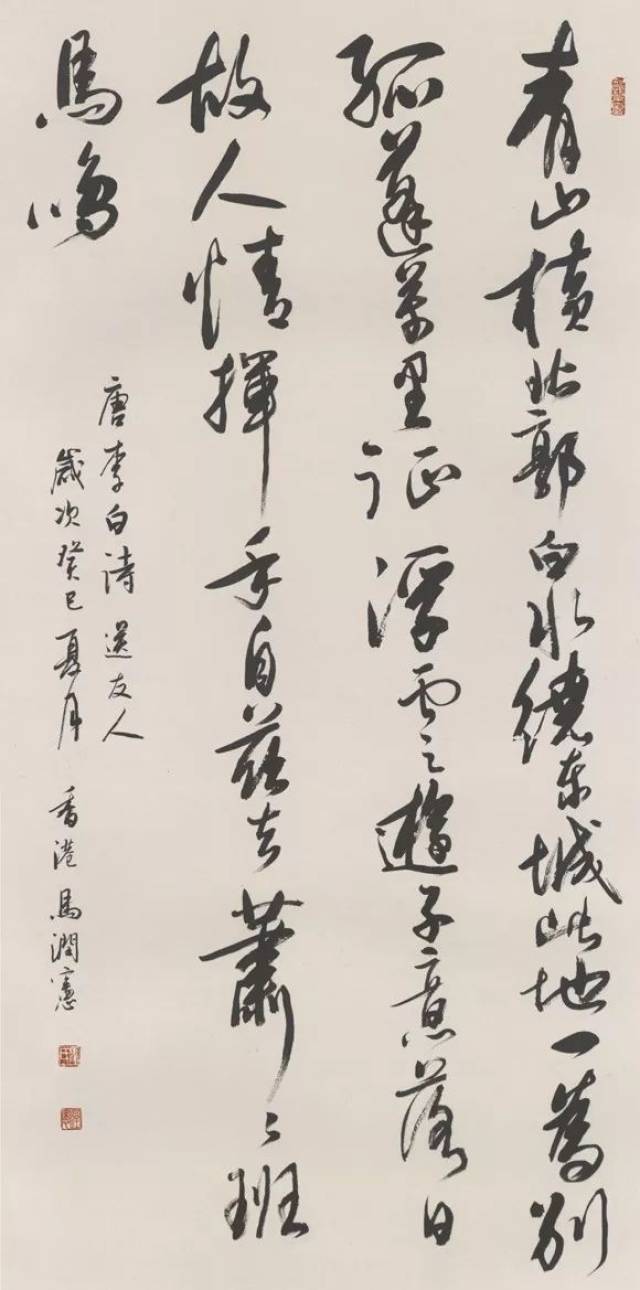 青山橫北郭白水繞東城此地一為別
孤蓬萬里征浮雲遊子意落日
故人情揮手自茲去蕭々班
馬鳴
唐李白詩送友人
歲次癸巳夏月香港馬潤憲